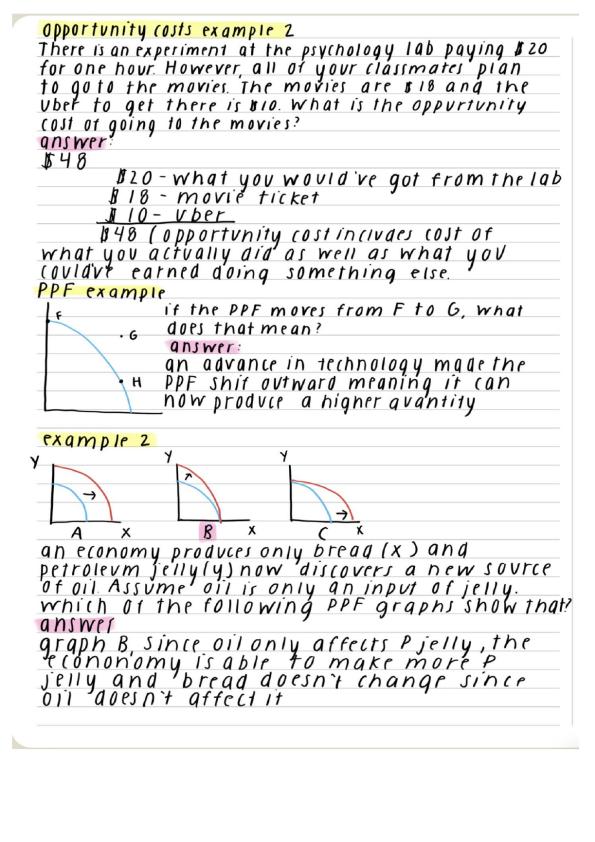 opportunity costs example 2
There is an experiment at the psychology lab paying $20
for one hour. However, all of your classmates plan
to go to the movies. The movies are $18 and the
uber to get there is $10. What is the oppurtunity
cost of going to the movies?
answer:
$48
$20 - what you would've got from the lab
$18 - movie ticket
$10 - uber
$48 (opportunity cost includes cost of
what you actually did as well as what you
could've earned doing something else.
PPF example
F
G
H
if the PPF moves from F to G, what
does that mean?
answer:
an advance in technology made the
PPF shif outward meaning it can
now produce a higher quantity
example 2
Y Y Y
A X B X C X
an economy produces only bread (x) and
petroleum jelly (y) now discovers a new source
of oil. Assume oil is only an input of jelly.
which of the following PPF graphs show that?
answer
graph B, since oil only affects P jelly, the
econonomy is able to make more P
jelly and bread doesn't change since
oil doesn't affect it